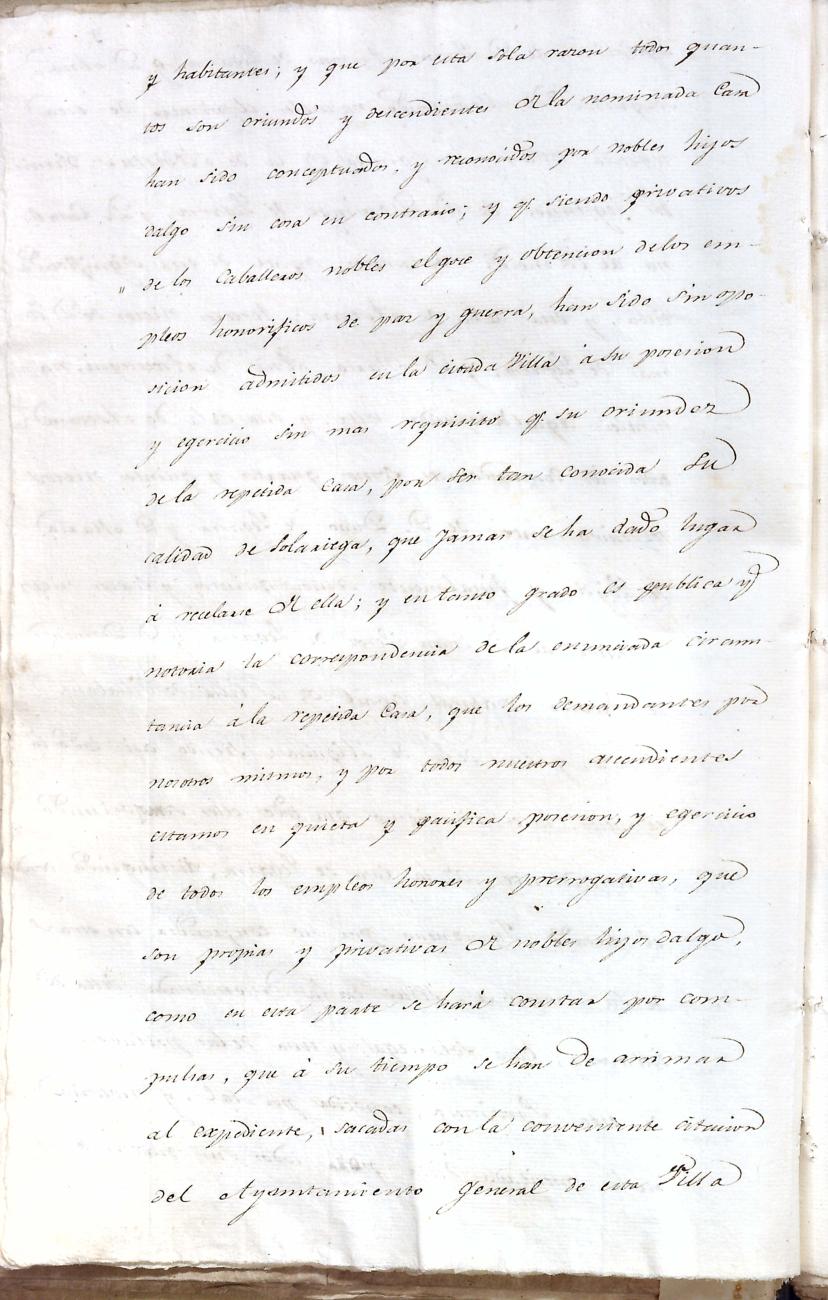 y habitantes; y que por esta sola razon todos quan-
tos son oriundos y descendientes de la nominada Casa
han sido conceptuados, y reconocidos por nobles hijos
dalgo sin cosa en contrario; y q.e siendo privativos
" de los Caballeros nobles el goce y obtencion de los em-
pleos honorificos de paz y guerra, han sido sin opo-
sicion admitidos en la citada Villa à su posesion
y egercicio sin mas requisito q.e su oriundez
de la repetida Casa, por ser tan conocida su
calidad de Solariega, que jamas se ha dado lugar
à recelarse de ella; y en tanto grado es publica y
notoria la correspondencia de la enunciada circuns-
tancia à la repetida Casa, que los demandantes por
nosotros mismos, y por todos nuestros ascendientes
estamos en quieta y pacifica posesion, y egercicio
de todos los empleos honores y prerrogativas, que
son propias y privativas de nobles hijos dalgo,
como en esta parte se hará constar por com-
pulsas, que à su tiempo se han de arrimar
al expediente, sacadas con la conveniente citacion
del Ayuntamiento general de esta Villa